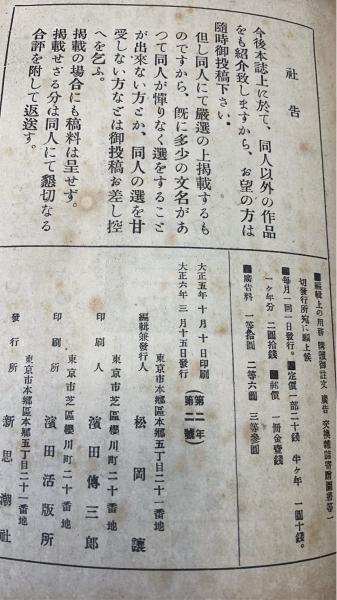 社告
今後本誌上に於て、同人以外の作品
をも紹介致しますから、お望の方は
隨時御投稿下さい。
但し同人にて嚴選の上掲載するも
のですから、既に多少の文名があ
つて同人が憚りなく選をすること
が出來ない方とか、同人の選を甘
受しない方などは御投稿お差し控
へを乞ふ。
掲載の場合にも稿料は呈せず。
掲載せざる分は同人にて懇切なる
合評を附して返送す。
■編輯上の用務 購讀御註文 廣告 交換雜誌寄贈圖書等一
切發行所宛に願上候
■毎月一回一日發行。■定價一部二十錢 半ヶ年 一圓十錢。
一ヶ年分 二圓拾錢 ■郵價 一册金壹錢
■廣告料 一等拾圓 二等六圓 三等參圓
大正五年十月十日印刷
大正六年三月十五日發行
(第二年 第二號)
東京市本郷區本郷五丁目二十一番地
編輯兼發行人 松岡讓
東京市芝區櫻川町二十一番地
印刷人 濱田傳三郎
東京市芝區櫻川町二十一番地
印刷所 濱田活版所
東京市本郷區本郷五丁目二十一番地
發行所 新思潮社